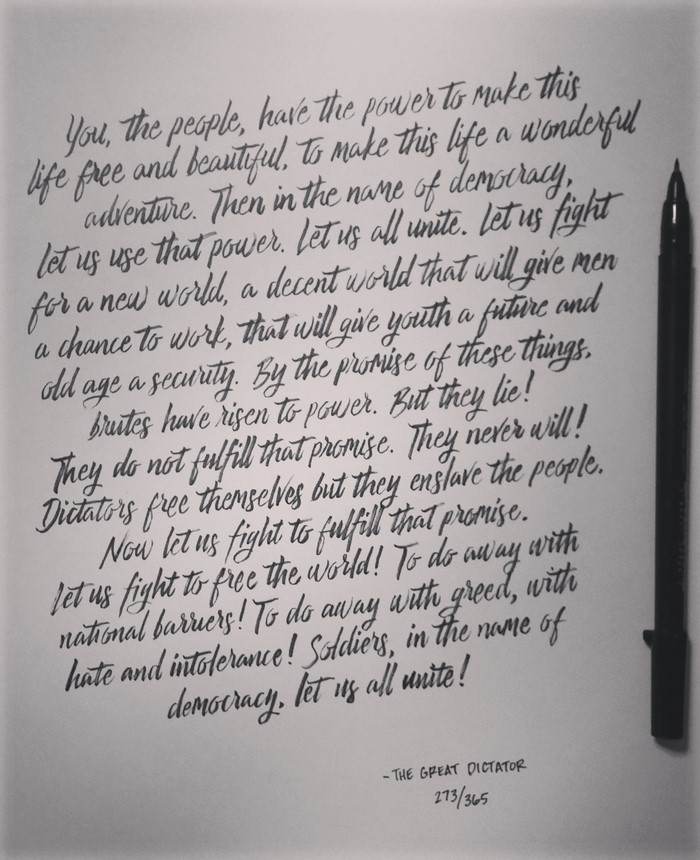 You, the people, have the power to make this
life free and beautiful, to make this life a wonderful
adventure. Then in the name of democracy,
let us use that power. Let us all unite. Let us fight
for a new world, a decent world that will give men
a chance to work, that will give youth a future and
old age a security. By the promise of these things,
brutes have risen to power. But they lie!
They do not fulfill that promise. They never will!
Dictators free themselves but they enslave the people.
Now let us fight to fulfill that promise.
Let us fight to free the world! To do away with
national barriers! To do away with greed, with
hate and intolerance! Soldiers, in the name of
democracy, let us all unite!
-THE GREAT DICTATOR
273/365